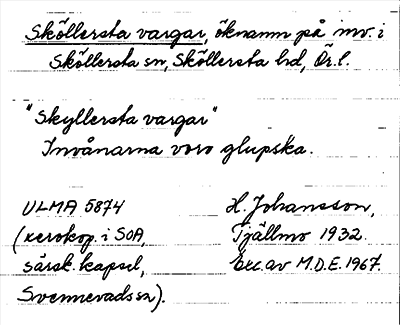 Sköllersta vargar, öknamn på inv. i
Sköllersta sn, Sköllersta hd, Ör. l.
"Skyllersta vargar"
Invånarna voro glupska.
ULMA 5874
(xerokop. i SOA,
särsk. kapsel,
Svennevads sn).
H. Johansson,
Tjällmo 1932.
Exc. av M.D.E. 1967.